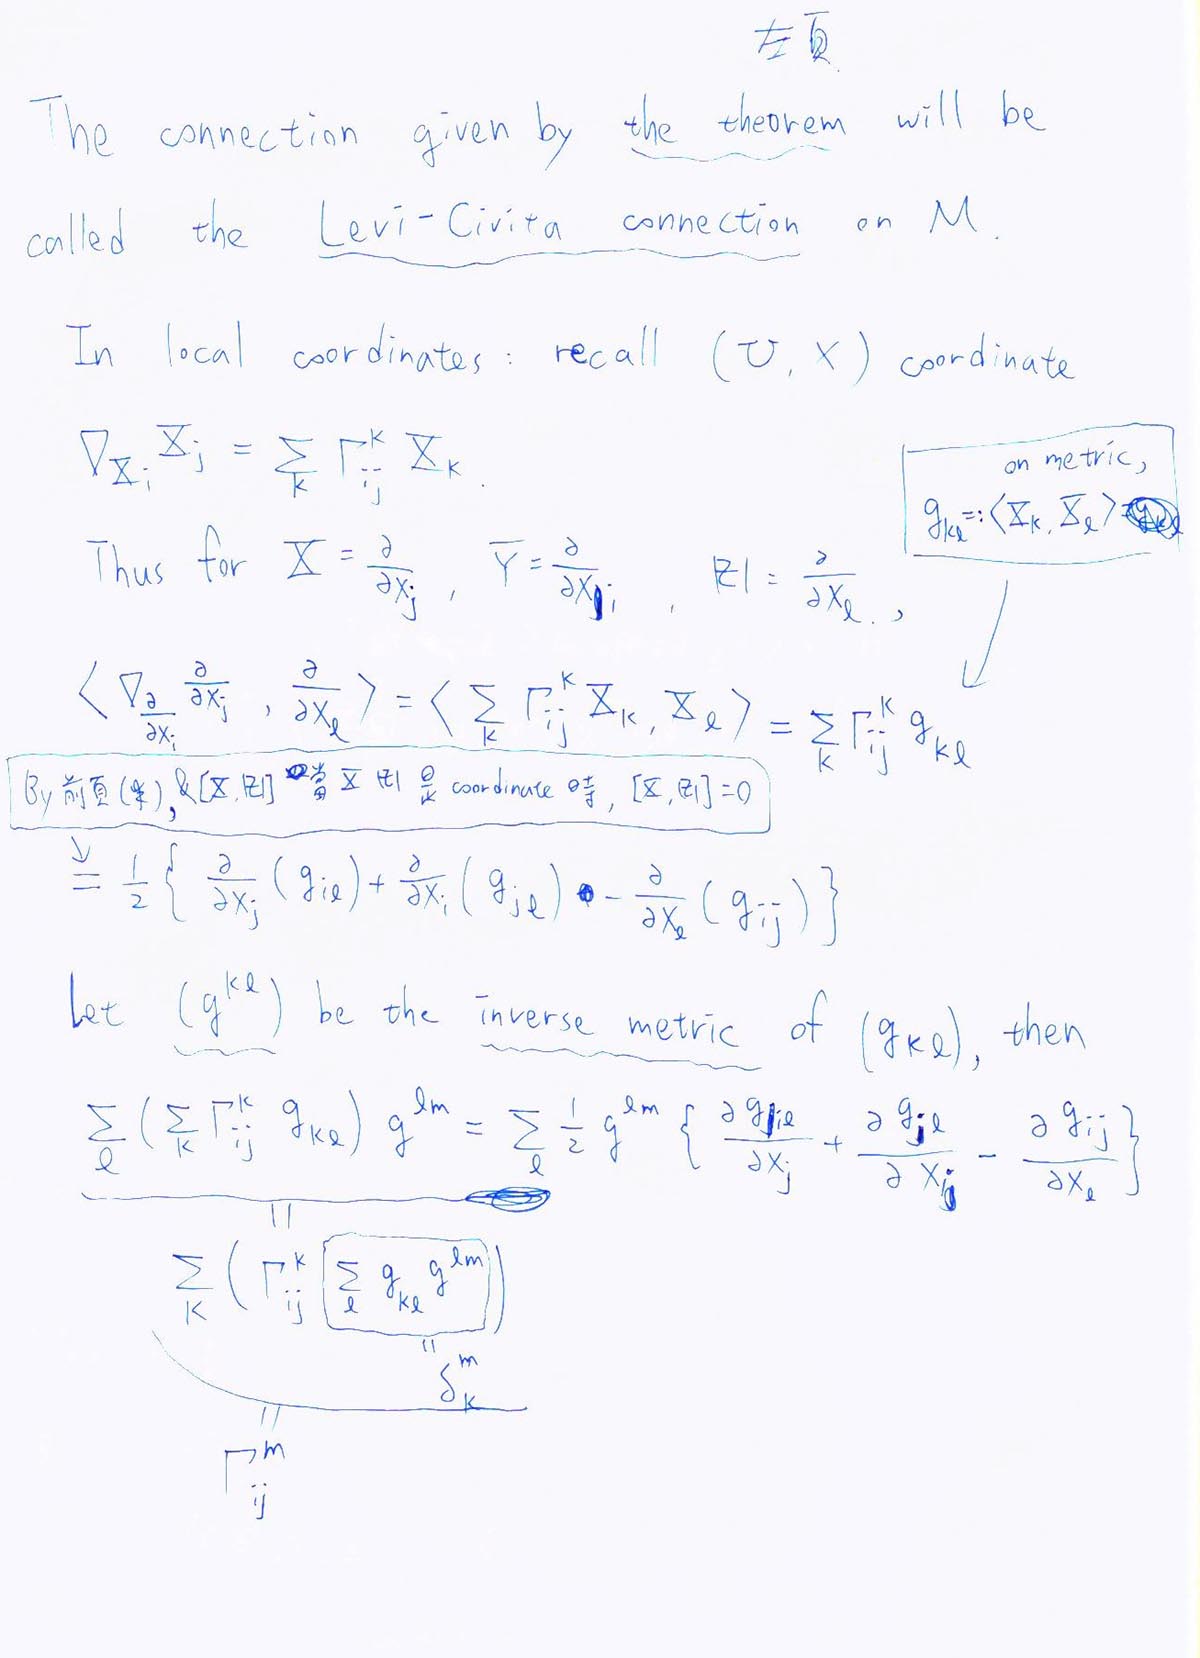 左頁
The connection given by the theorem will be
called the Levi-Civita connection on M.
In local coordinates: recall (U, X) coordinate
∇_{X_i} X_j = Σ_k Γ_{ij}^k X_k.
on metric,
g_{kℓ} =: ⟨X_k, X_ℓ⟩
Thus for X = ∂/∂x_j, Y = ∂/∂x_i, Z = ∂/∂x_ℓ.,
⟨∇_{∂/∂x_i} ∂/∂x_j, ∂/∂x_ℓ⟩ = ⟨Σ_k Γ_{ij}^k X_k, X_ℓ⟩ = Σ_k Γ_{ij}^k g_{kℓ}
By 前頁(*), & [X, Z] 當 X Z 是 coordinate 時, [X, Z] = 0
= 1/2 { ∂/∂x_j (g_{iℓ}) + ∂/∂x_i (g_{jℓ}) - ∂/∂x_ℓ (g_{ij}) }
Let (g^{kℓ}) be the inverse metric of (g_{kℓ}), then
Σ_ℓ (Σ_k Γ_{ij}^k g_{kℓ}) g^{ℓm} = Σ_ℓ 1/2 g^{ℓm} { ∂g_{iℓ}/∂x_j + ∂g_{jℓ}/∂x_i - ∂g_{ij}/∂x_ℓ }
||
Σ_k (Γ_{ij}^k Σ_ℓ g_{kℓ} g^{ℓm})
||
δ_k^m
||
Γ_{ij}^m